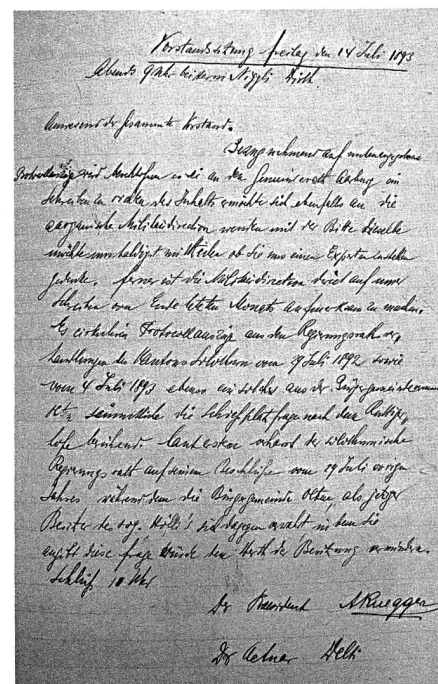 Vorstandssitzung freitag den 14 Juli 1893
Abends 9 Uhr bei Herrn Niggli Wirth
Anwesend der Gesammte Vorstand.
Bezug nehmend auf
wird beschlossen es sei an den Gemeinderath Aarburg ein
Schreiben zu richten des Inhalts er möchte sich ebenfalls an die
aargauische Militärdirection wenden mit der Bitte dieselbe
möchte mittheilen ob sie uns einen Experten bestellen
gedenke. ferner sei die Militärdirection direct auf unser
Schreiben von Ende letzten Monats aufmerksam zu machen.
Es circuliren Protocollauszüge aus den Regierungsrath ver,
handlungen des Kantons Solothurn vom 29 Juli 1892 sowie
vom 4 Juli 1893 ebenso ein solcher aus der
sämmtliche die Schiessplatzfrage nach dem
berührend. laut erstem beharrt der solothurnische
Regierungsrath auf seinem Beschlusse vom 29 Juli vorigen
Jahres während dem die Bürgergemeinde Olten, als jetziger
Besitzer des sog. sich dagegen indem sie
angibt diese frage würde den Werth der Besitzung vermindern.
Schluss 10 Uhr.
Der Praesident A Ruegger
Der Actuar